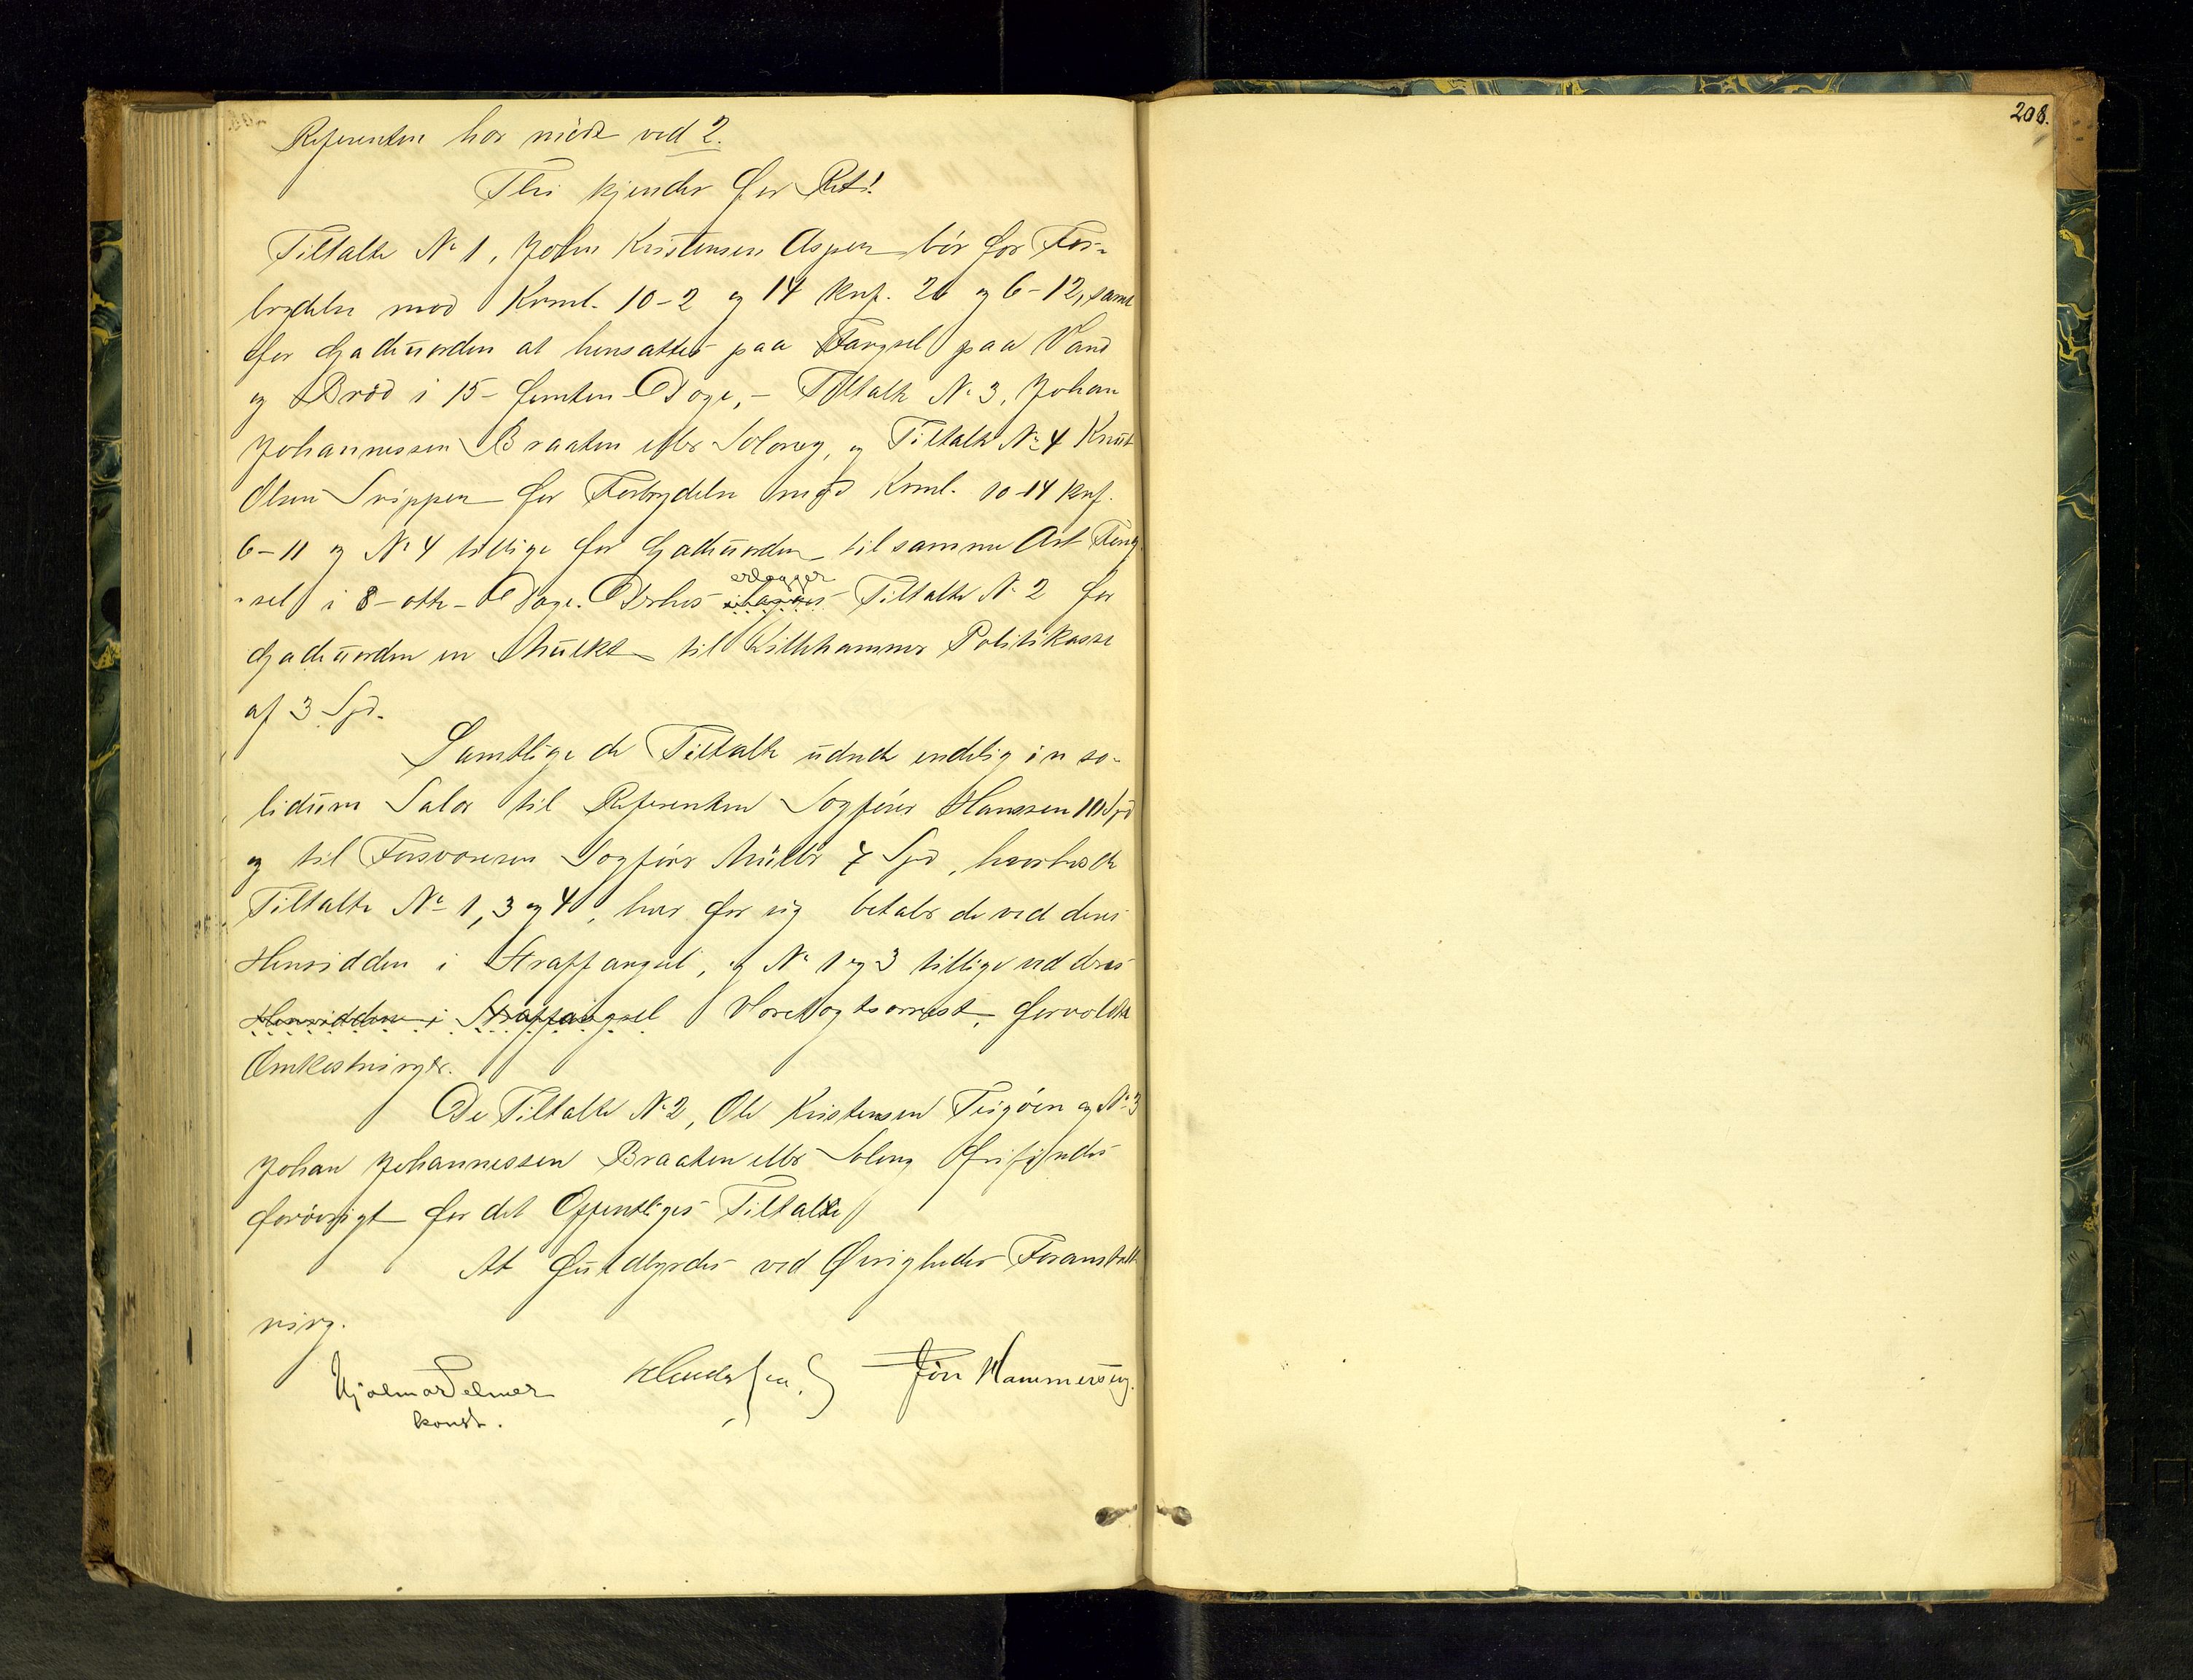 Referenten har mödt ved 2.
Thi kjendes for Ret!
Tiltalte No 1, John Kristensen Aspen bör for For-
brydelse mod Krml. 10-2 og 14 Knf. 26 og 6-12, samt
for Gadeuorden at hensættes paa Fængsel paa Vand
og Bröd i 15 - femten - Dage, - Tiltalte No 3, Johan
Johannessen Braaten eller Soleng, og Tiltalte No 4 Knut
Olsen Svippen for Forbrydelse mod Krml. 10-14 Knf.
6-11 og No 4 tillige for Gadeuorden til samme Art Feng-
sel i 8 - otte - Dage. Derhos erlægger Tiltalte No 2 for
Gadeuorden en Mulkt til Lillehammer Politikasse
af 3 Spd.
Samtlige de Tiltalte udrede endelig in so-
lidum Salær til Referenten Sagförer Hanssen 10 Spd
og til Forsvareren Sagförer Müller 7 Spd, hvorhos de
Tiltalte No 1, 3 og 4, hver for sig betaler de ved deres
Hensidden i Straffangsel, og No 1 og 3 tillige ved deres
Hensidden i Straffangsel Varetægtsarrest, forvoldte
Omkostninger.
De Tiltalte No 2, Ole Kristensen og No 3
Johan Johannessen Braaten eller Soleng frifindes
forövrigt for det Offentliges Tiltale
At fuldbyrdes ved Övrigheden Foranstalt-
ning.
Hjalmar Selmer Jörn Hammerseng.
konst.
208.